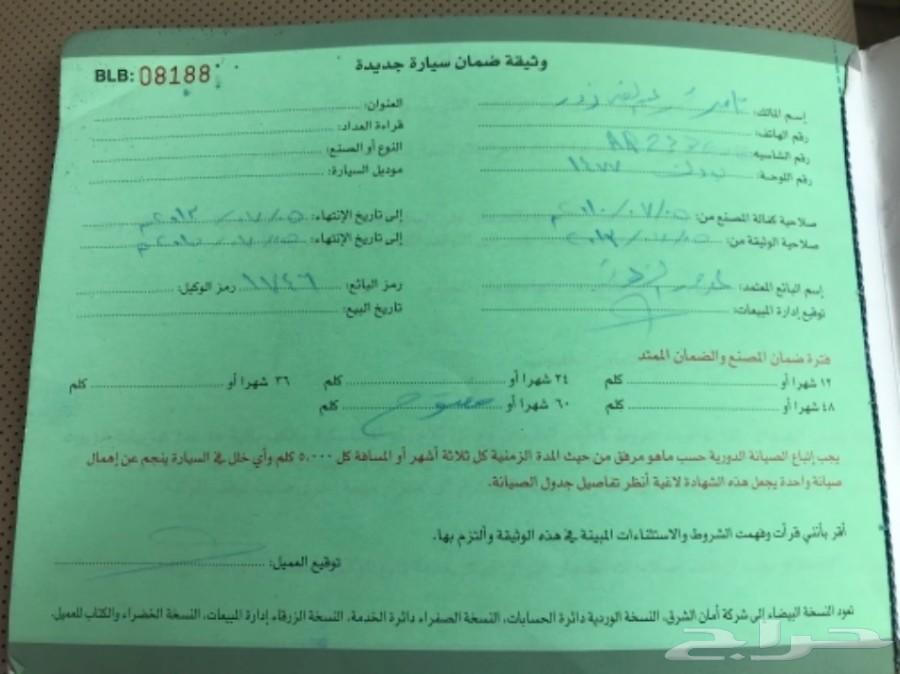 وثيقة ضمان سيارة جديدة
BLB: 08188
إسم المالك: العنوان:
رقم الهاتف: قراءة العداد:
رقم الشاسيه: AR 233 النوع أو الصنع:
رقم اللوحة: ١٤٧٧ موديل السيارة:
صلاحية كفالة المصنع من: ٢٠١٠/٠٧/٠٥م إلى تاريخ الإنتهاء: ٢٠١٣/٠٧/٠٥م
صلاحية الوثيقة من: إلى تاريخ الإنتهاء:
إسم البائع المعتمد: رمز البائع: ١٧٤٦ رمز الوكيل:
توقيع إدارة المبيعات: تاريخ البيع:
فترة ضمان المصنع والضمان الممتد
١٢ شهرا أو كلم ٢٤ شهرا أو كلم ٣٦ شهرا أو كلم
٤٨ شهرا أو كلم ٦٠ شهرا أو مفتوح كلم
يجب إتباع الصيانة الدورية حسب ماهو مرفق من حيث المدة الزمنية كل ثلاثة أشهر أو المسافة كل ٥,٠٠٠ كلم وأي خلل في السيارة ينجم عن إهمال
صيانة واحدة يجعل هذه الشهادة لاغية أنظر تفاصيل جدول الصيانة.
أقر بأنني قرأت وفهمت الشروط والاستثناءات المبينة في هذه الوثيقة وألتزم بها.
توقيع العميل:
تعود النسخة البيضاء إلى شركة أمان الشرق، النسخة الوردية دائرة الحسابات، النسخة الصفراء دائرة الخدمة، النسخة الزرقاء إدارة المبيعات، النسخة الخضراء والكتاب للعميل.
حراج